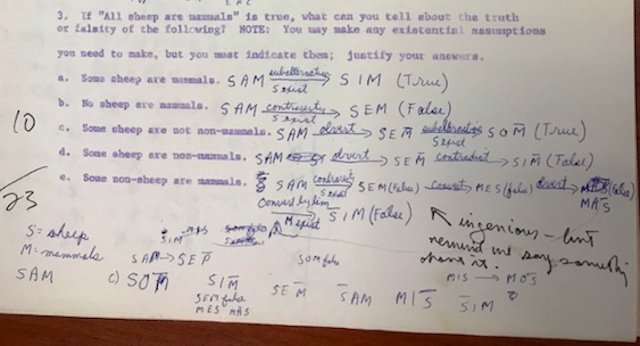 3. If "All sheep are mammals" is true, what can you tell about the truth
or falsity of the following? NOTE: You may make any existential assumptions
you need to make, but you must indicate them; justify your answers.
a. Some sheep are mammals. SAM subalternation S exist → SIM (True)
b. No sheep are mammals. SAM contrariety S exist → SEM (False)
c. Some sheep are not non-mammals. SAM obvert → SEM̄ subalternation S exist SOM̄ (True)
10
d. Some sheep are non-mammals. SAM obvert → SEM̄ contradict → SIM̄ (False)
e. Some non-sheep are mammals. SAM contrariety S exist → SEM (False) convert → MES (false) obvert → (false)
MAS̄
23
Convert by lim M exist → S̄IM (False)
ingenious - but
remind me say something
about it.
S = sheep
M = mammals
SIM
SAM → SEP̄
SOM false
MIS → MOS̄
SAM
c) SOM̄
SIM̄
SEM false
MES MAS̄
SEM̄
S̄AM
MIS̄
S̄IM